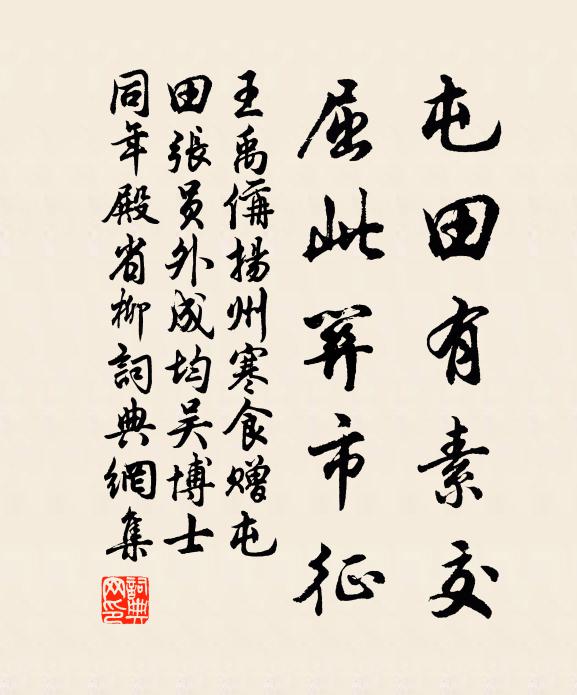 屯田有素交
屈此關市征
王禹偁揚州寒食贈屯
田張員外成均吴博士
同年殿省柳詞典網集
詞典网印